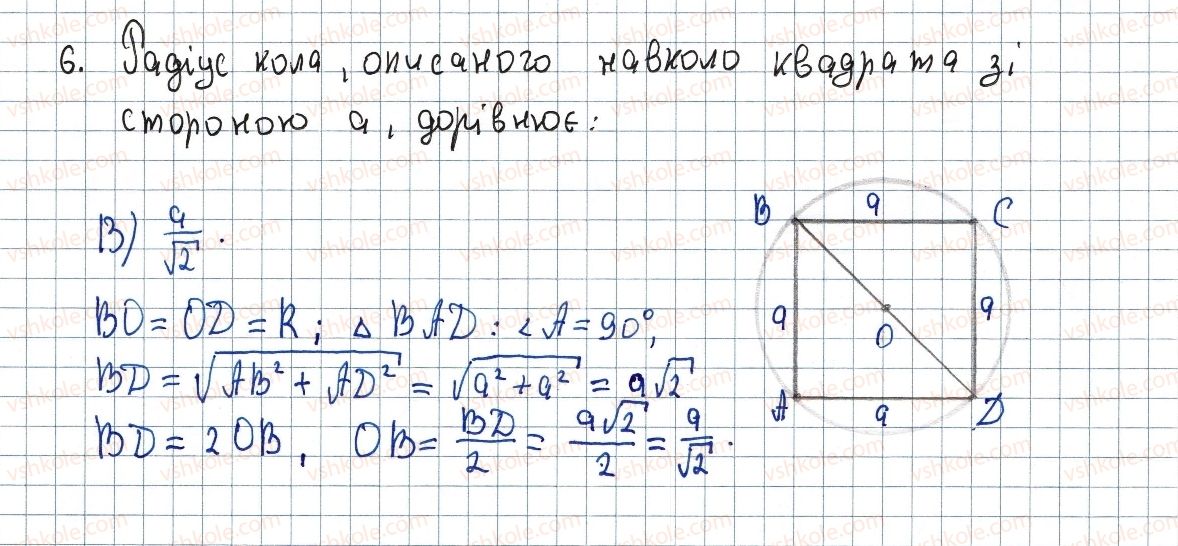 6. Радіус кола, описаного навколо квадрата зі
стороною a, дорівнює:
В) a/√2.
BO = OD = R; △ BAD: ∠A = 90°,
BD = √(AB² + AD²) = √(a² + a²) = a√2
BD = 2OB, OB = BD/2 = a√2/2 = a/√2.
B a C
a O a
A a D
vshkole.com